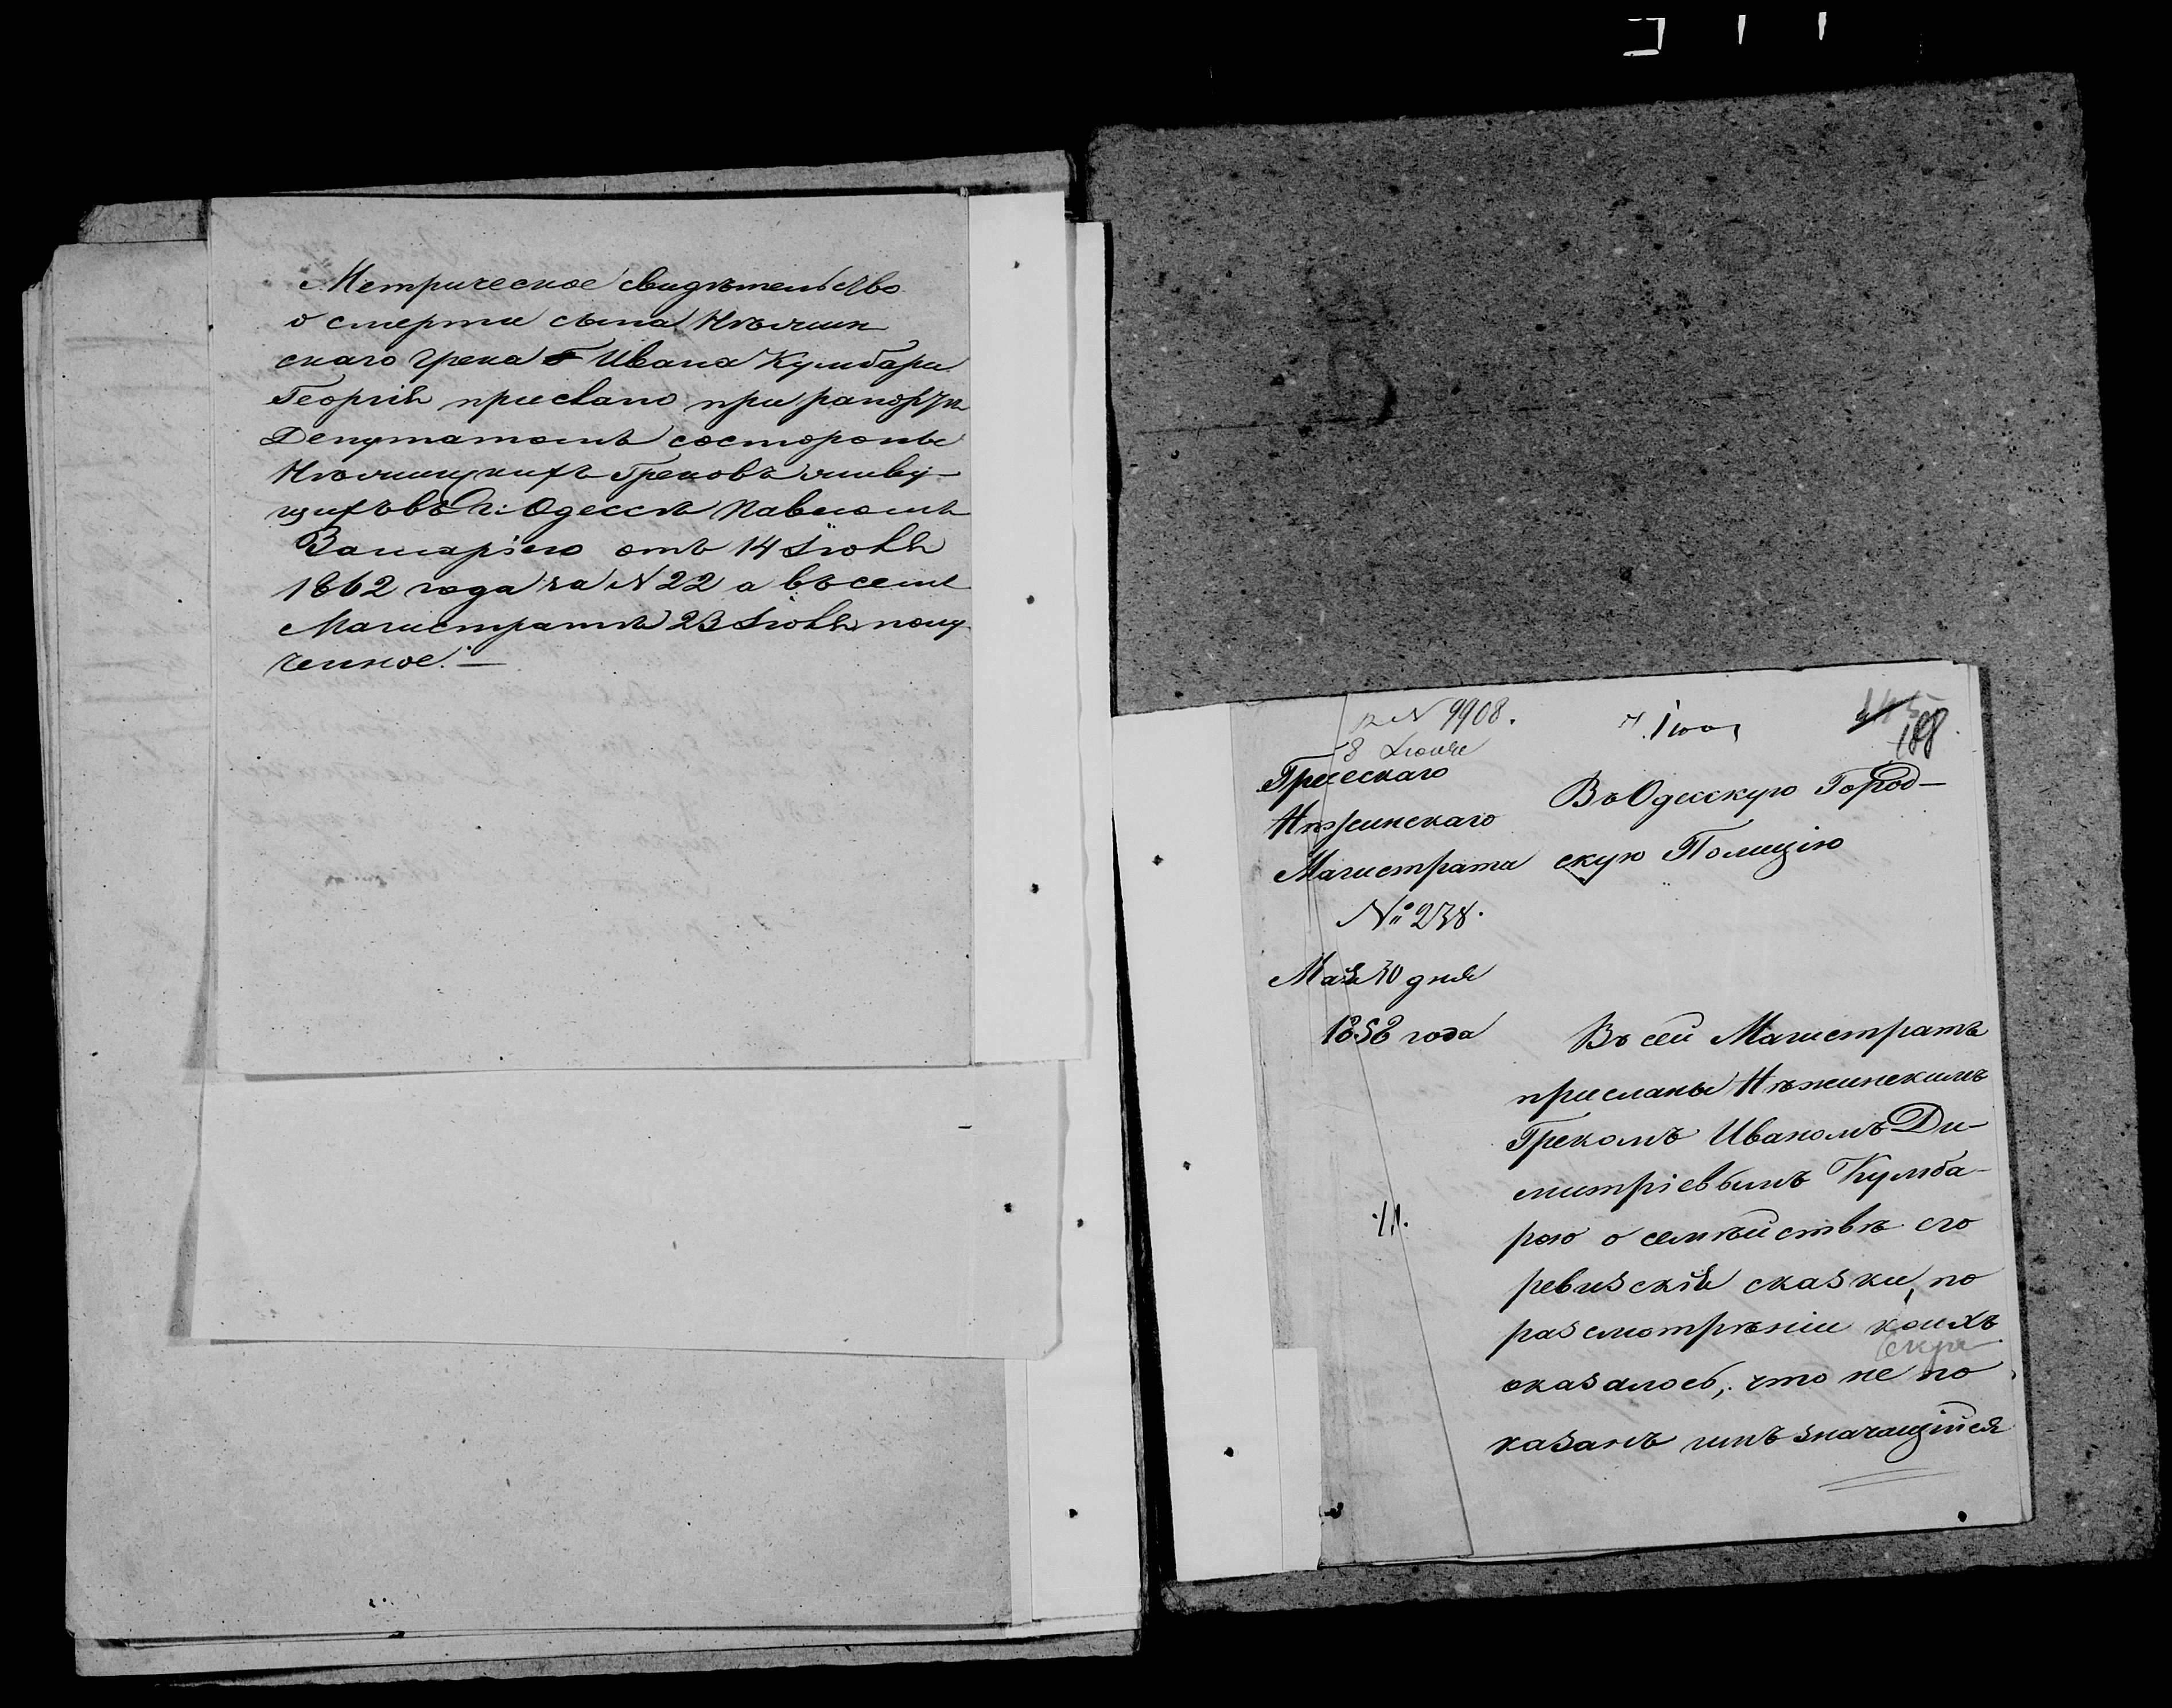 Метрическое свидѣтельство
о смерти сына Нѣжин
скаго грека Ивана Кумбари
Георгія прислано при рапортѣ
Депутатомъ состороны
Нѣжинскихъ Грековъ живу-
щихъ въ г: Одессѣ Павломъ
отъ 14 Іюня
1862 года за N 22 а въ семъ
Магистратѣ 23 Іюня полу
ченное. —
N 9908.
8 Іюня
188
Греческаго
Нѣжинскаго
Магистрата
№ 238.
Мая 30 дня
1858 года
Въ Одесскую Город-
скую Полицію
Въ сей Магистратъ
присланы Нѣжинскимъ
Грекомъ Иваномъ Ди-
митріевымъ Кумба-
рою о семѣйствѣ его
ревизскія сказки, по
разсмотрѣніи коихъ
оказалось, что не по
казанъ имъ значащійся